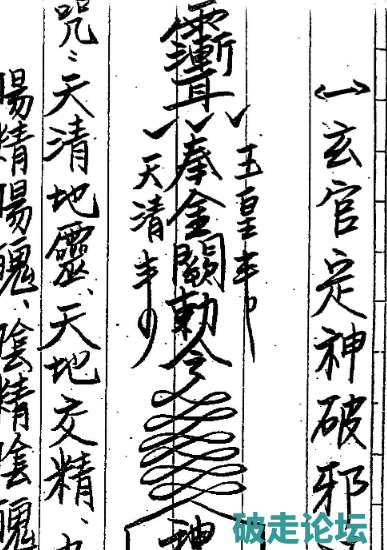 (一)玄官定神破邪
玉皇丰
奉金闕勅令
神
天清丰
咒:天清地靈、天地交精、九
陽精陽魄、陰精陰魄
破走论坛